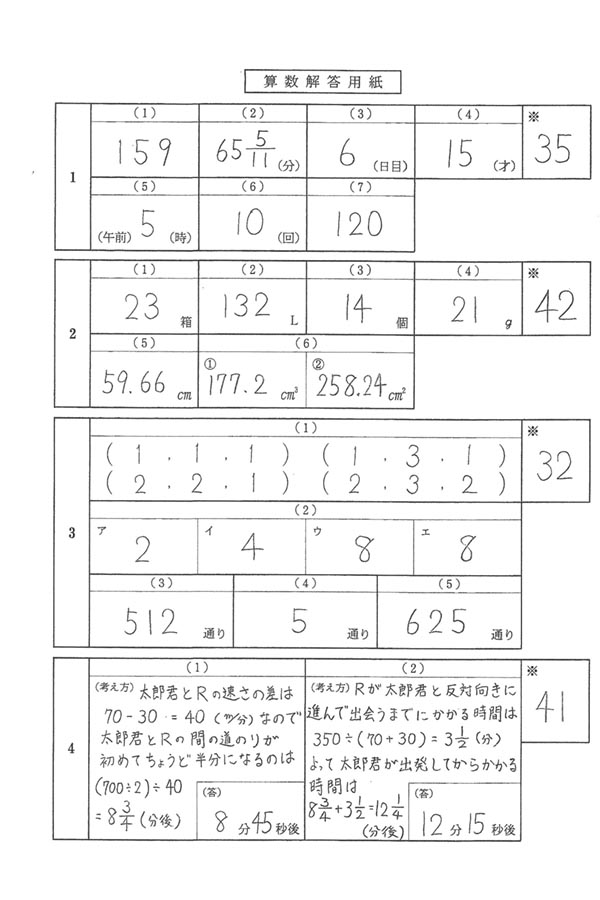 算数解答用紙
1
(1) (2) (3) (4) ※
159 65 5/11 (分) 6 (日目) 15 (才) 35
(5) (6) (7)
(午前) 5 (時) 10 (回) 120
2
(1) (2) (3) (4) ※
23 箱 132 L 14 個 21 g 42
(5) (6)
59.66 cm ① 177.2 cm³ ② 258.24 cm²
3
(1) ※
( 1 . 1 . 1 ) ( 1 . 3 . 1 ) 32
( 2 . 2 . 1 ) ( 2 . 3 . 2 )
(2)
ア 2 イ 4 ウ 8 エ 8
(3) (4) (5)
512 通り 5 通り 625 通り
4
(1)
(考え方) 太郎君とRの速さの差は
70-30=40 (m/分)なので
太郎君とRの間の道のりが
初めてちょうど半分になるのは
(700÷2)÷40
=8 3/4 (分後)
(答)
8 分 45 秒後
(2)
(考え方) Rが太郎君と反対向きに
進んで出会うまでにかかる時間は
350÷(70+30)=3 1/2 (分)
よって太郎君が出発してからかかる
時間は
8 3/4+3 1/2=12 1/4
(分後)
(答)
12 分 15 秒後
※
41